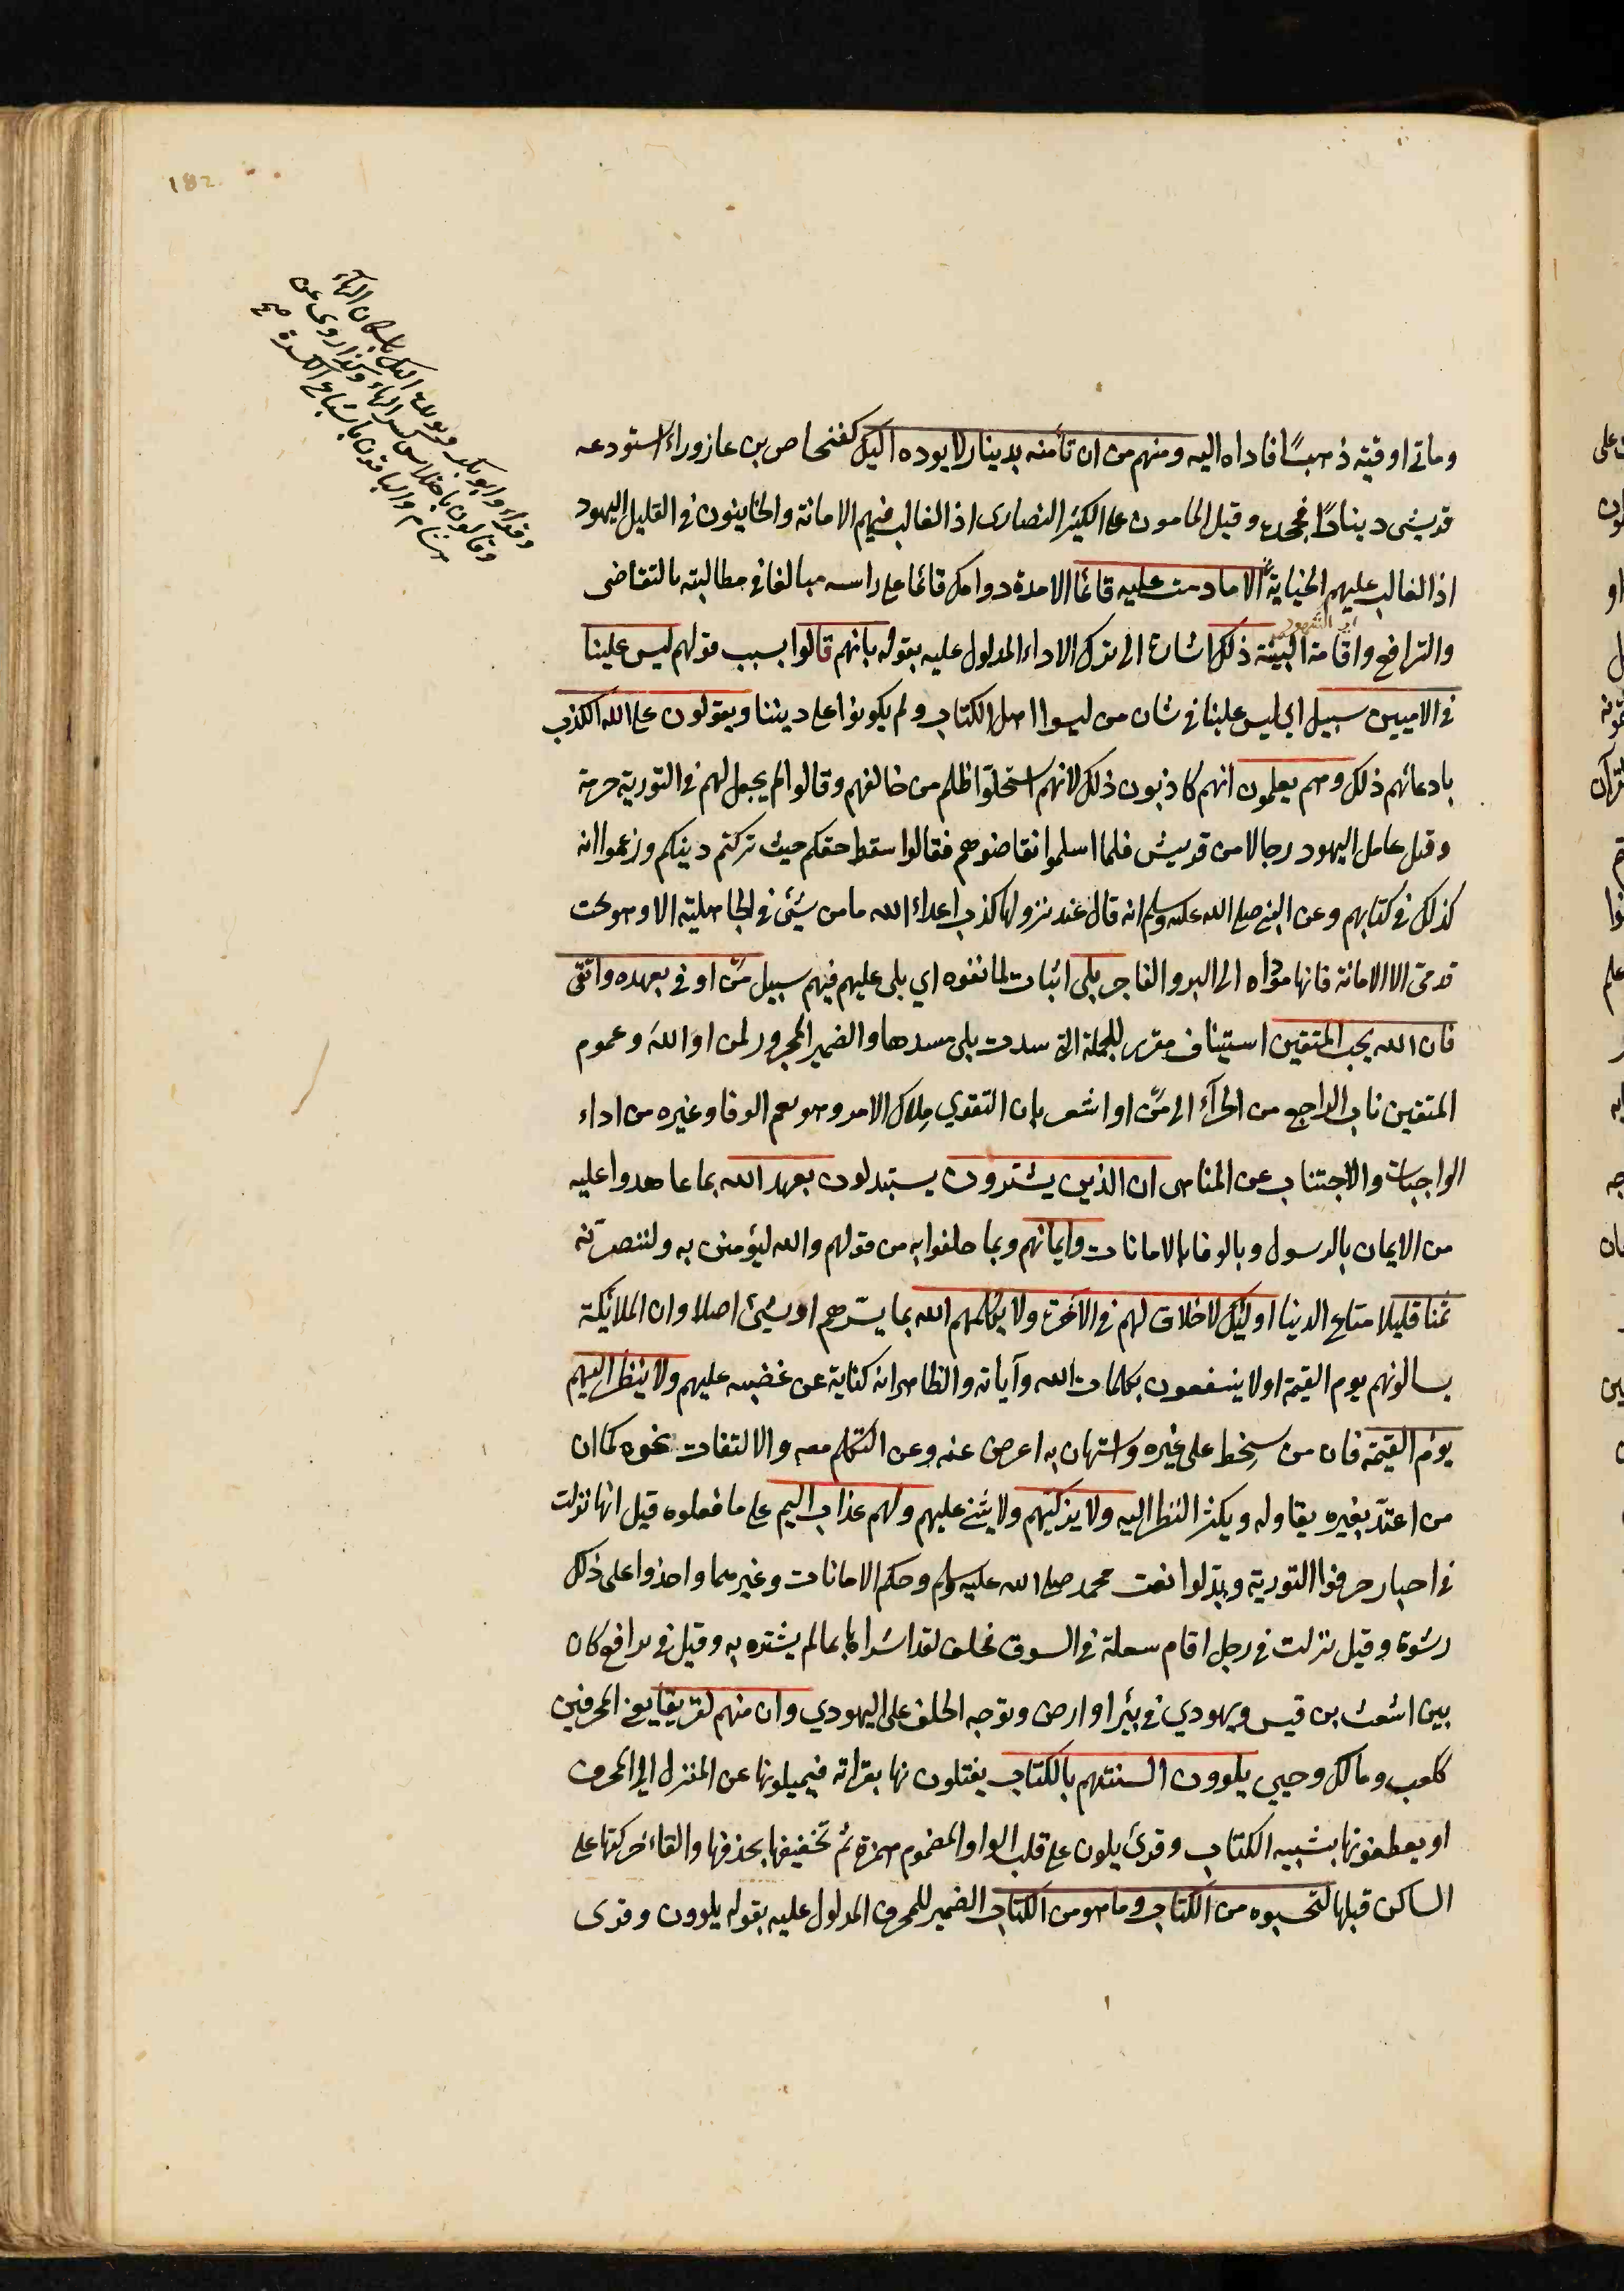 وماتي اوقية ذهبًا فاداه اليه ومنهم من ان تأمنه بدينار لا يوده اليك كفنحاص بن عازوراء استودعه
قريشى دينارًا فجحده وقيل المامون على الكثير النصارى اذ الغالب فيهم الامانة والخاينون في القليل اليهود
اذ الغالب عليهم الخيانة الا ما دمت عليه قائما الا مدة دوامك قائما على راسه مبالغا في مطالبته بالتقاضى
اي الشهود
والترافع واقامة البينة ذلك اشارة الى ترك الاداء المدلول عليه بقوله بانهم قالوا بسبب قولهم ليس علينا
في الاميين سبيل اي ليس علينا في شان من ليسوا اهل الكتاب ولم يكونوا على ديننا ويقولون على الله الكذب
بادعائهم ذلك وهم يعلمون انهم كاذبون ذلك لانهم استحلّوا ظلم من خالفهم وقالوا لم يجعل لهم في التورية حرمة
وقيل عامل اليهود رجالا من قريش فلما اسلموا تقاضوهم فقالوا سقط حقكم حيث تركتم دينكم وزعموا انه
كذلك في كتابهم وعن النبي صلى الله عليه وسلم انه قال عند نزولها كذب اعداء الله ما من شيئ في الجاهلية الا وهو تحت
قدمىّ الا الامانة فانها مؤداه الى البر والفاجر بلى اثبات لما نفوه اي بلى عليهم فيهم سبيل منّ اوفى بعهده واتقى
فان الله يحب المتقين استيناف مقرر للجملة التي سدت بلى مسدها والضمير المجرور لمن او الله وعموم
المتقين ناب الراجع من الجزآء الى منّ اواشعر بان التقوي مِلاك الامر وهو يعم الوفا وغيره من اداء
الواجبات والاجتناب عن المناهى ان الذين يشترون يستبدلون بعهد الله بما عاهدوا عليه
من الايمان بالرسول وبالوفا بالامانات وايمانهم وبما حلفوا به من قولهم والله ليؤمنن به ولننصرّنه
ثمنا قليلا متاع الدنيا اوليئك لا خلاق لهم في الآخرة ولا يكلمهم الله بما يسّرهم او بشيئ اصلا وان الملائكة
يسالونهم يوم القيمة او لا ينتفعون بكلمات الله وآياته والظاهر انه كناية عن غضبه عليهم ولا ينظر اليهم
يوم القيمة فان من سخِط على غيره واستهان به اعرض عنه وعن التكلم معه والالتفات نحوه كما ان
من اعتدّ بغيره يقاوله ويكثر النظر اليه ولا يزكيهم ولا يثني عليهم ولهم عذاب اليم على ما فعلوه قيل انها نزلت
في احبار حرفوا التورية وبدّلوا نعت محمد صلى الله عليه وسلم وحكم الامانات وغيرهما واخذوا على ذلك
رشوة وقيل نزلت في رجل اقام سعلة في السوق فحلف لقد اشتراها بما لم يشتره به وقيل في ترافع كان
بين اشعث بن قيس ويهودي في بئر او ارض وتوجه الحلف على اليهودي وان منهم لفريقا يعني المحرفين
ككعب ومالك وحيي يلوون السنتهم بالكتاب يفتلون نها بقراته فيميلونها عن المنزل الى المحرف
او يعطفونها بشبيه الكتاب وقرئ يلون على قلب الواو المضموم همزة ثم تخفيفها بحذفها والقاء حركتها على
الساكن قبلها لتحسبوه من الكتاب وما هو من الكتاب الضمير للمحرف المدلول عليه بقوله يلوون وقرى
وقراء وابو بكر وابو عمرو اليك باسكان الهاء
وقالون باختلاس كسر الهاء وكذا روى عن
هشام والباقون باشباع الكسرة صح
182